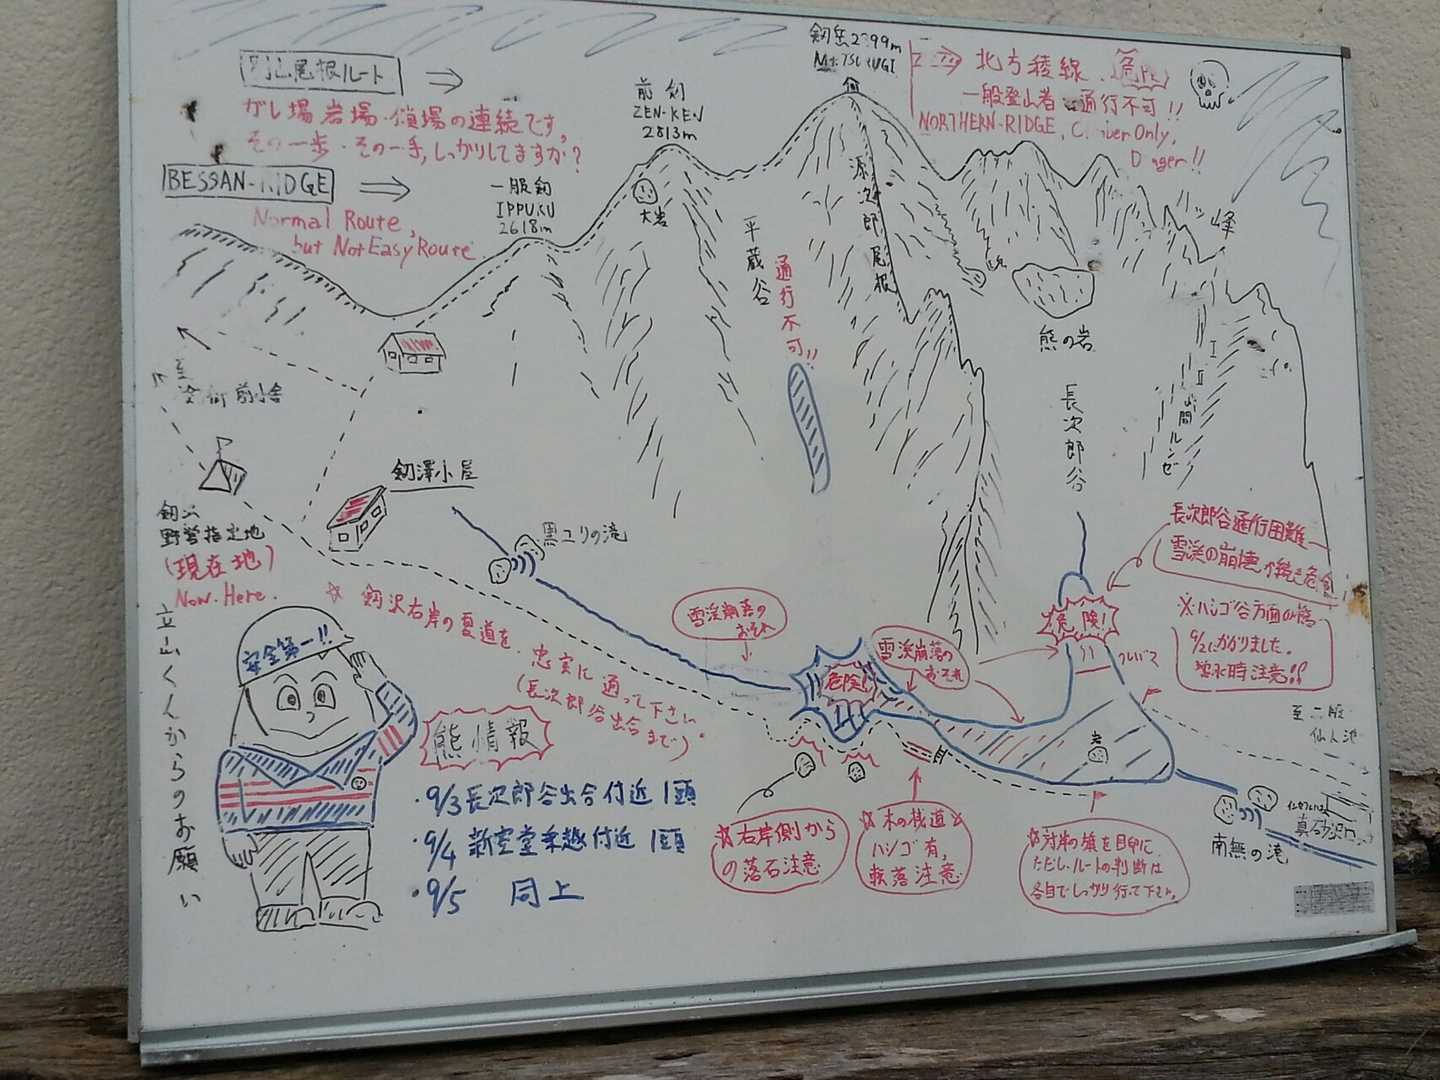 山尾根ルート
ガレ場岩場・鎖場の連続です。
その一歩・その一手、しっかりしてますか?
BESSAN-RIDGE
Normal Route,
but Not Easy Route
一服剱
IPPUKU
2618m
前剱
ZEN-KEN
2813m
大岩
剱岳2999m
Mt. TSURUGI
北方稜線、危険
一般登山者 通行不可!!
NORTHERN-RIDGE, Climber Only,
Danger!!
源次郎尾根
平蔵谷
通行不可!!
八ッ峰
熊の岩
長次郎谷
Ⅰ
Ⅱ
間ルンゼ
至
前小舎
剱沢
野営指定地
(現在地)
Now. Here.
剱澤小屋
黒ユリの滝
☆ 剱沢右岸の夏道を、忠実に通って下さい。
(長次郎谷出合まで)
雪渓崩落の
おそれ
危険!
雪渓崩落の
おそれ
危険!
クレバス
長次郎谷通行困難
雪渓の崩壊が続き危険
※ハシゴ谷方面の橋
9/2にかかりました。
増水時注意!!
至 二股
仙人池
岩
真砂沢
南無の滝
立山くんからのお願い
安全第一!!
熊情報
・9/3 長次郎谷出合付近 1頭
・9/4 新室堂乗越付近 1頭
・9/5 同上
☆右岸側から
の落石注意
☆木の桟道と
ハシゴ有、
転落注意
☆対岸の旗を目印に
ただしルートの判断は
各自でしっかり行って下さい。